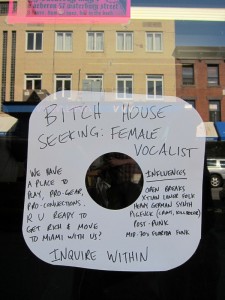 BITCH HOUSE
SEEKING: FEMALE
VOCALIST
WE HAVE
A PLACE TO
PLAY, PRO-GEAR,
PRO-CONNECTIONS.
R U READY TO
GET RICH & MOVE
TO MIAMI WITH US?
INFLUENCES
OPEN BREAKS
XTIAN LOVER FOLK
HEAVY GERMAN SYNTH
PIGFUCK (
POST-PUNK
MID-70s FLORIDA FUNK
INQUIRE WITHIN